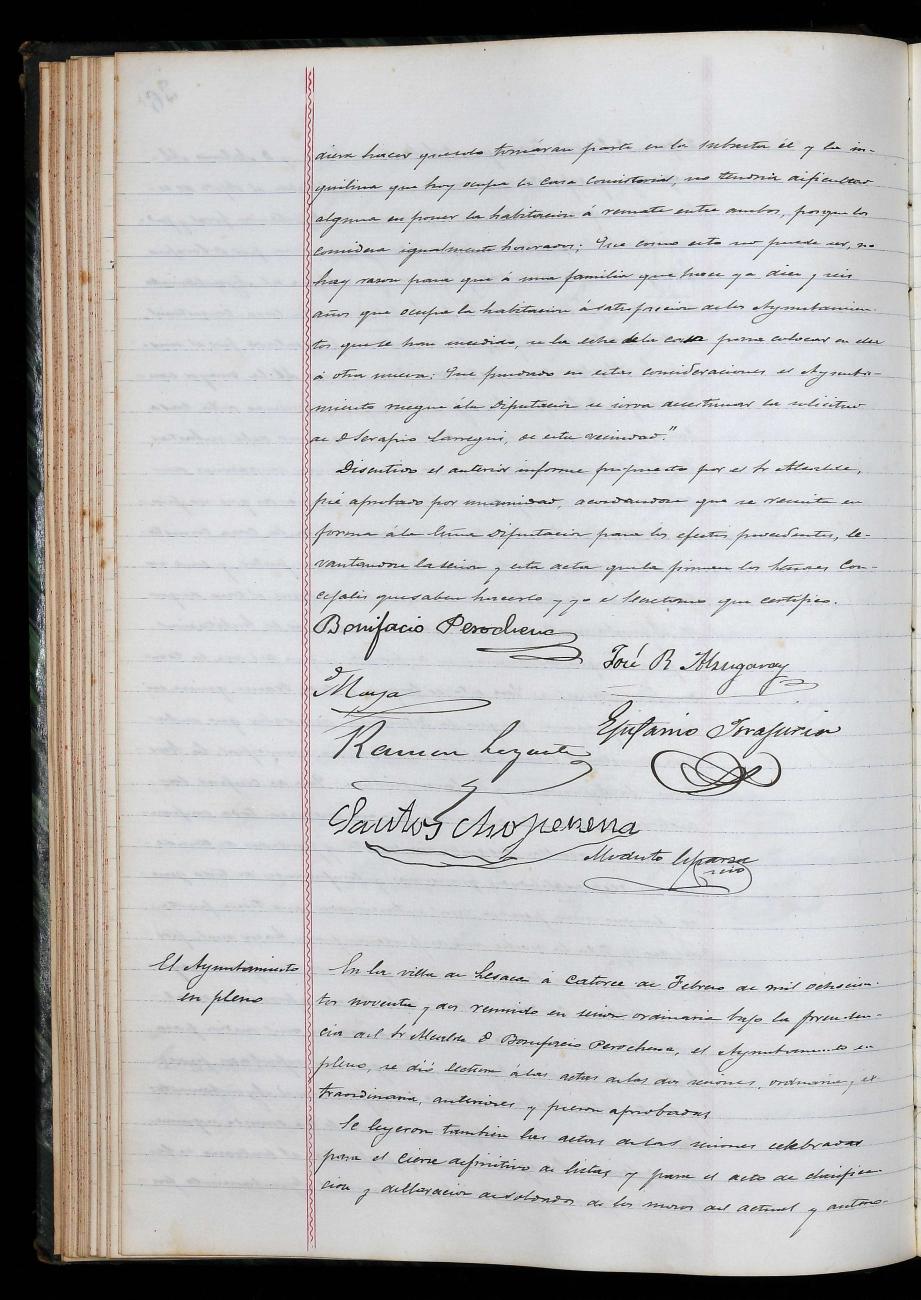 diera hacer quando tomáran parte en la subasta él y la in-
quilina que hoy ocupa la casa Consistorial, no tendria dificultad
alguna en poner la habitacion á remate entre ambos, porque los
considera igualmente honrados; Que como esto no puede ser, no
hay razon para que á una familia que hace ya diez y seis
años que ocupa la habitacion á satisfaccion de los Ayuntamien-
tos que se han sucedido, se la eche de la casa para colocar en ella
á otra nueva: Que fundado en estas consideraciones el Ayunta-
miento ruegue á la Diputacion se sirva desestimar la solicitud
de D Serapio Larregui, de esta vecindad."
Discutido el anterior informe propuesto por el Sr Alcalde,
fué aprobado por unanimidad, acordandose que se remita en
forma á la Exma Diputacion para los efectos procedentes, le-
vantandose la sesion y esta acta que la firman los Señores Con-
cejales que saben hacerlo y yo el Secretario que certifico.
Bonifacio Perochena
José R Alzugaray
Maya
Epifanio Irazusta
Ramon
Santos Choperena
Modesto Esparza
srio
El Ayuntamiento
en pleno
En la villa de Lesaca á catorce de Febrero de mil ochocien-
tos noventa y dos reunido en sesion ordinaria bajo la presiden-
cia del Sr Alcalde D Bonifacio Perochena, el Ayuntamiento en
pleno, se dió lectura á las actas de las dos sesiones, ordinaria y ex
traordinaria, anteriores y fueron aprobadas
Se leyeron tambien las actas de las sesiones celebradas
para el cierre definitivo de listas y para el acto de clasifica-
cion y declaracion de soldados de los mozos del actual y anterio-